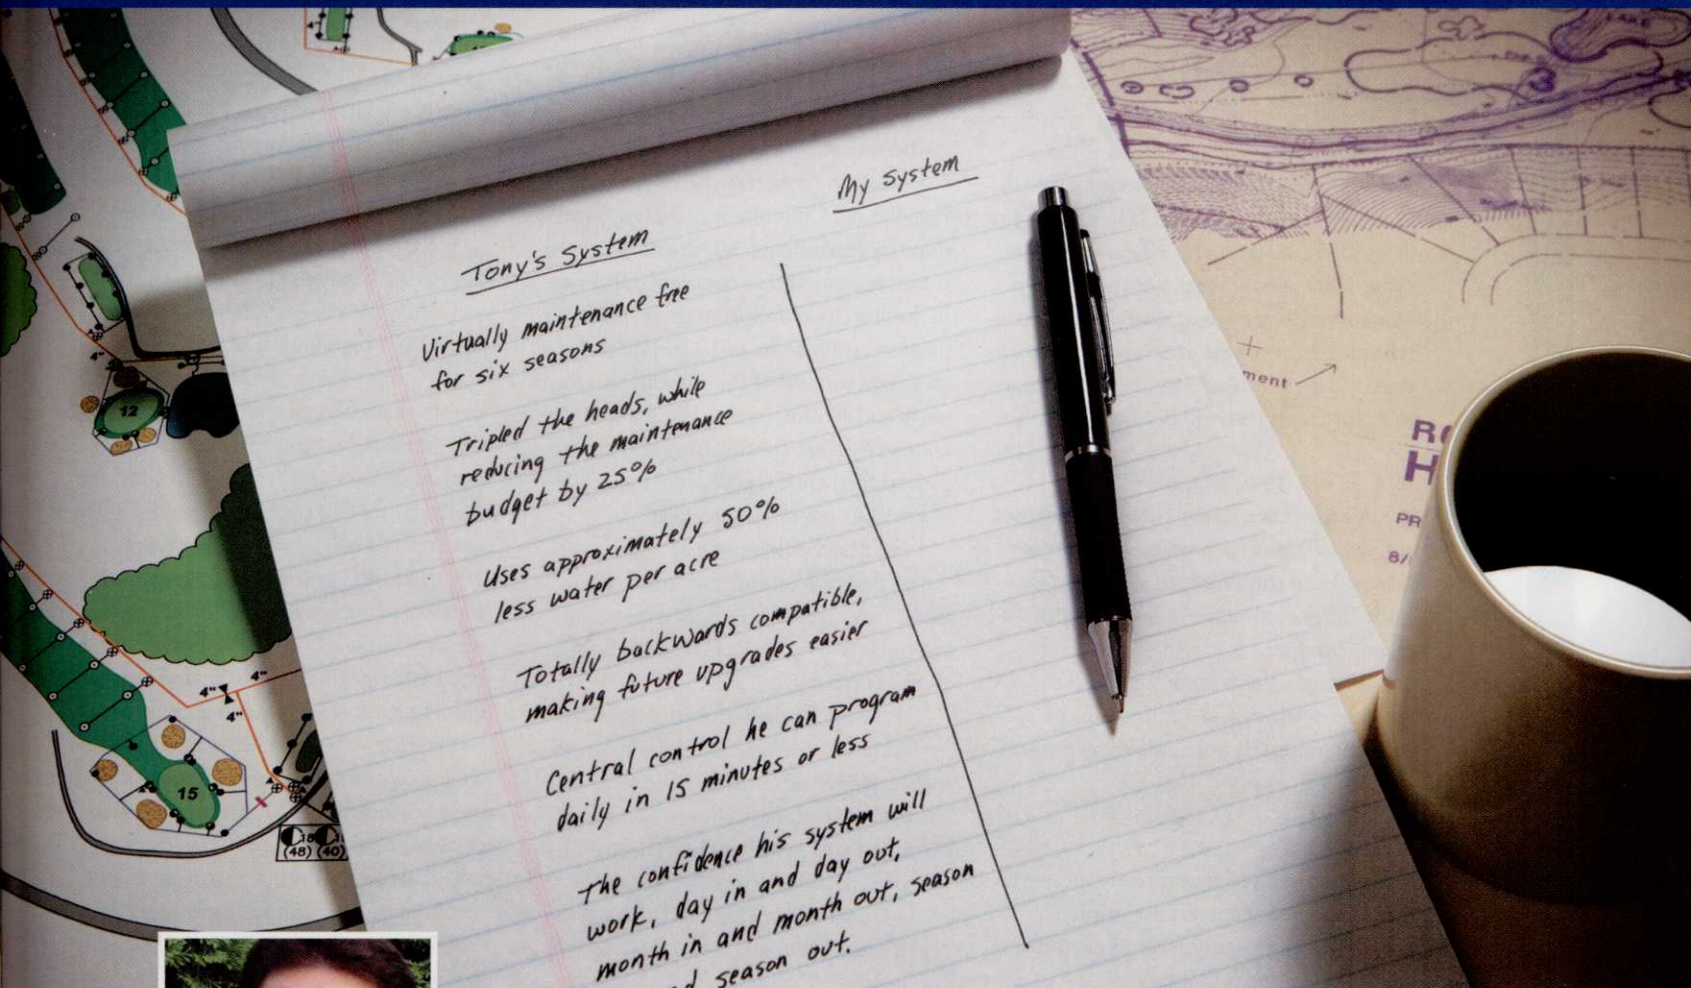 My System
Tony's System
Virtually maintenance free
for six seasons
Tripled the heads, while
reducing the maintenance
budget by 25%
Uses approximately 50%
less water per acre
Totally backwards compatible,
making future upgrades easier
Central control he can program
daily in 15 minutes or less
The confidence his system will
work, day in and day out,
month in and month out, season
season out.
LAKE
3
ment
H
PR
8/
4"
12
4"
4"
4"
15
(48) (40)